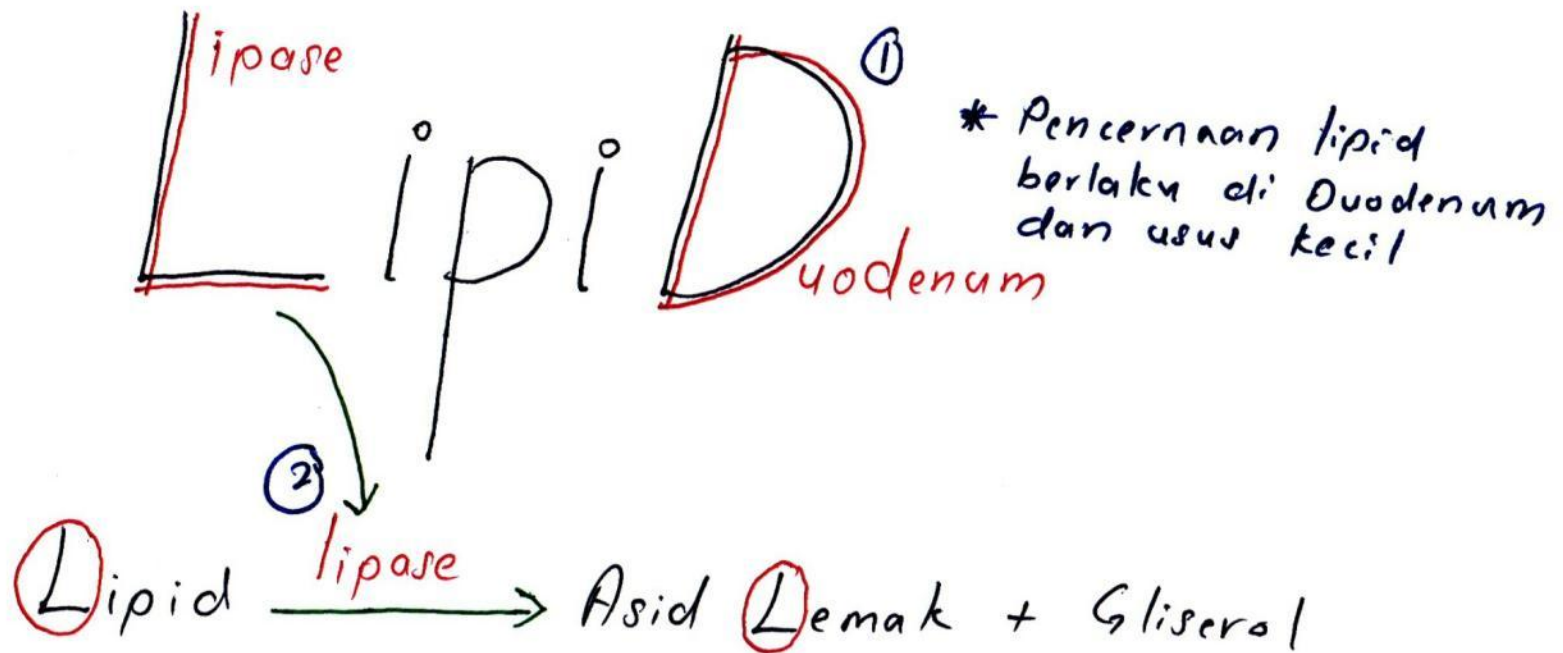 Lipase
LipiD
Duodenum
①
* Pencernaan lipid
berlaku di Duodenum
dan usus kecil
②
lipase
Lipid → Asid Lemak + Gliserol